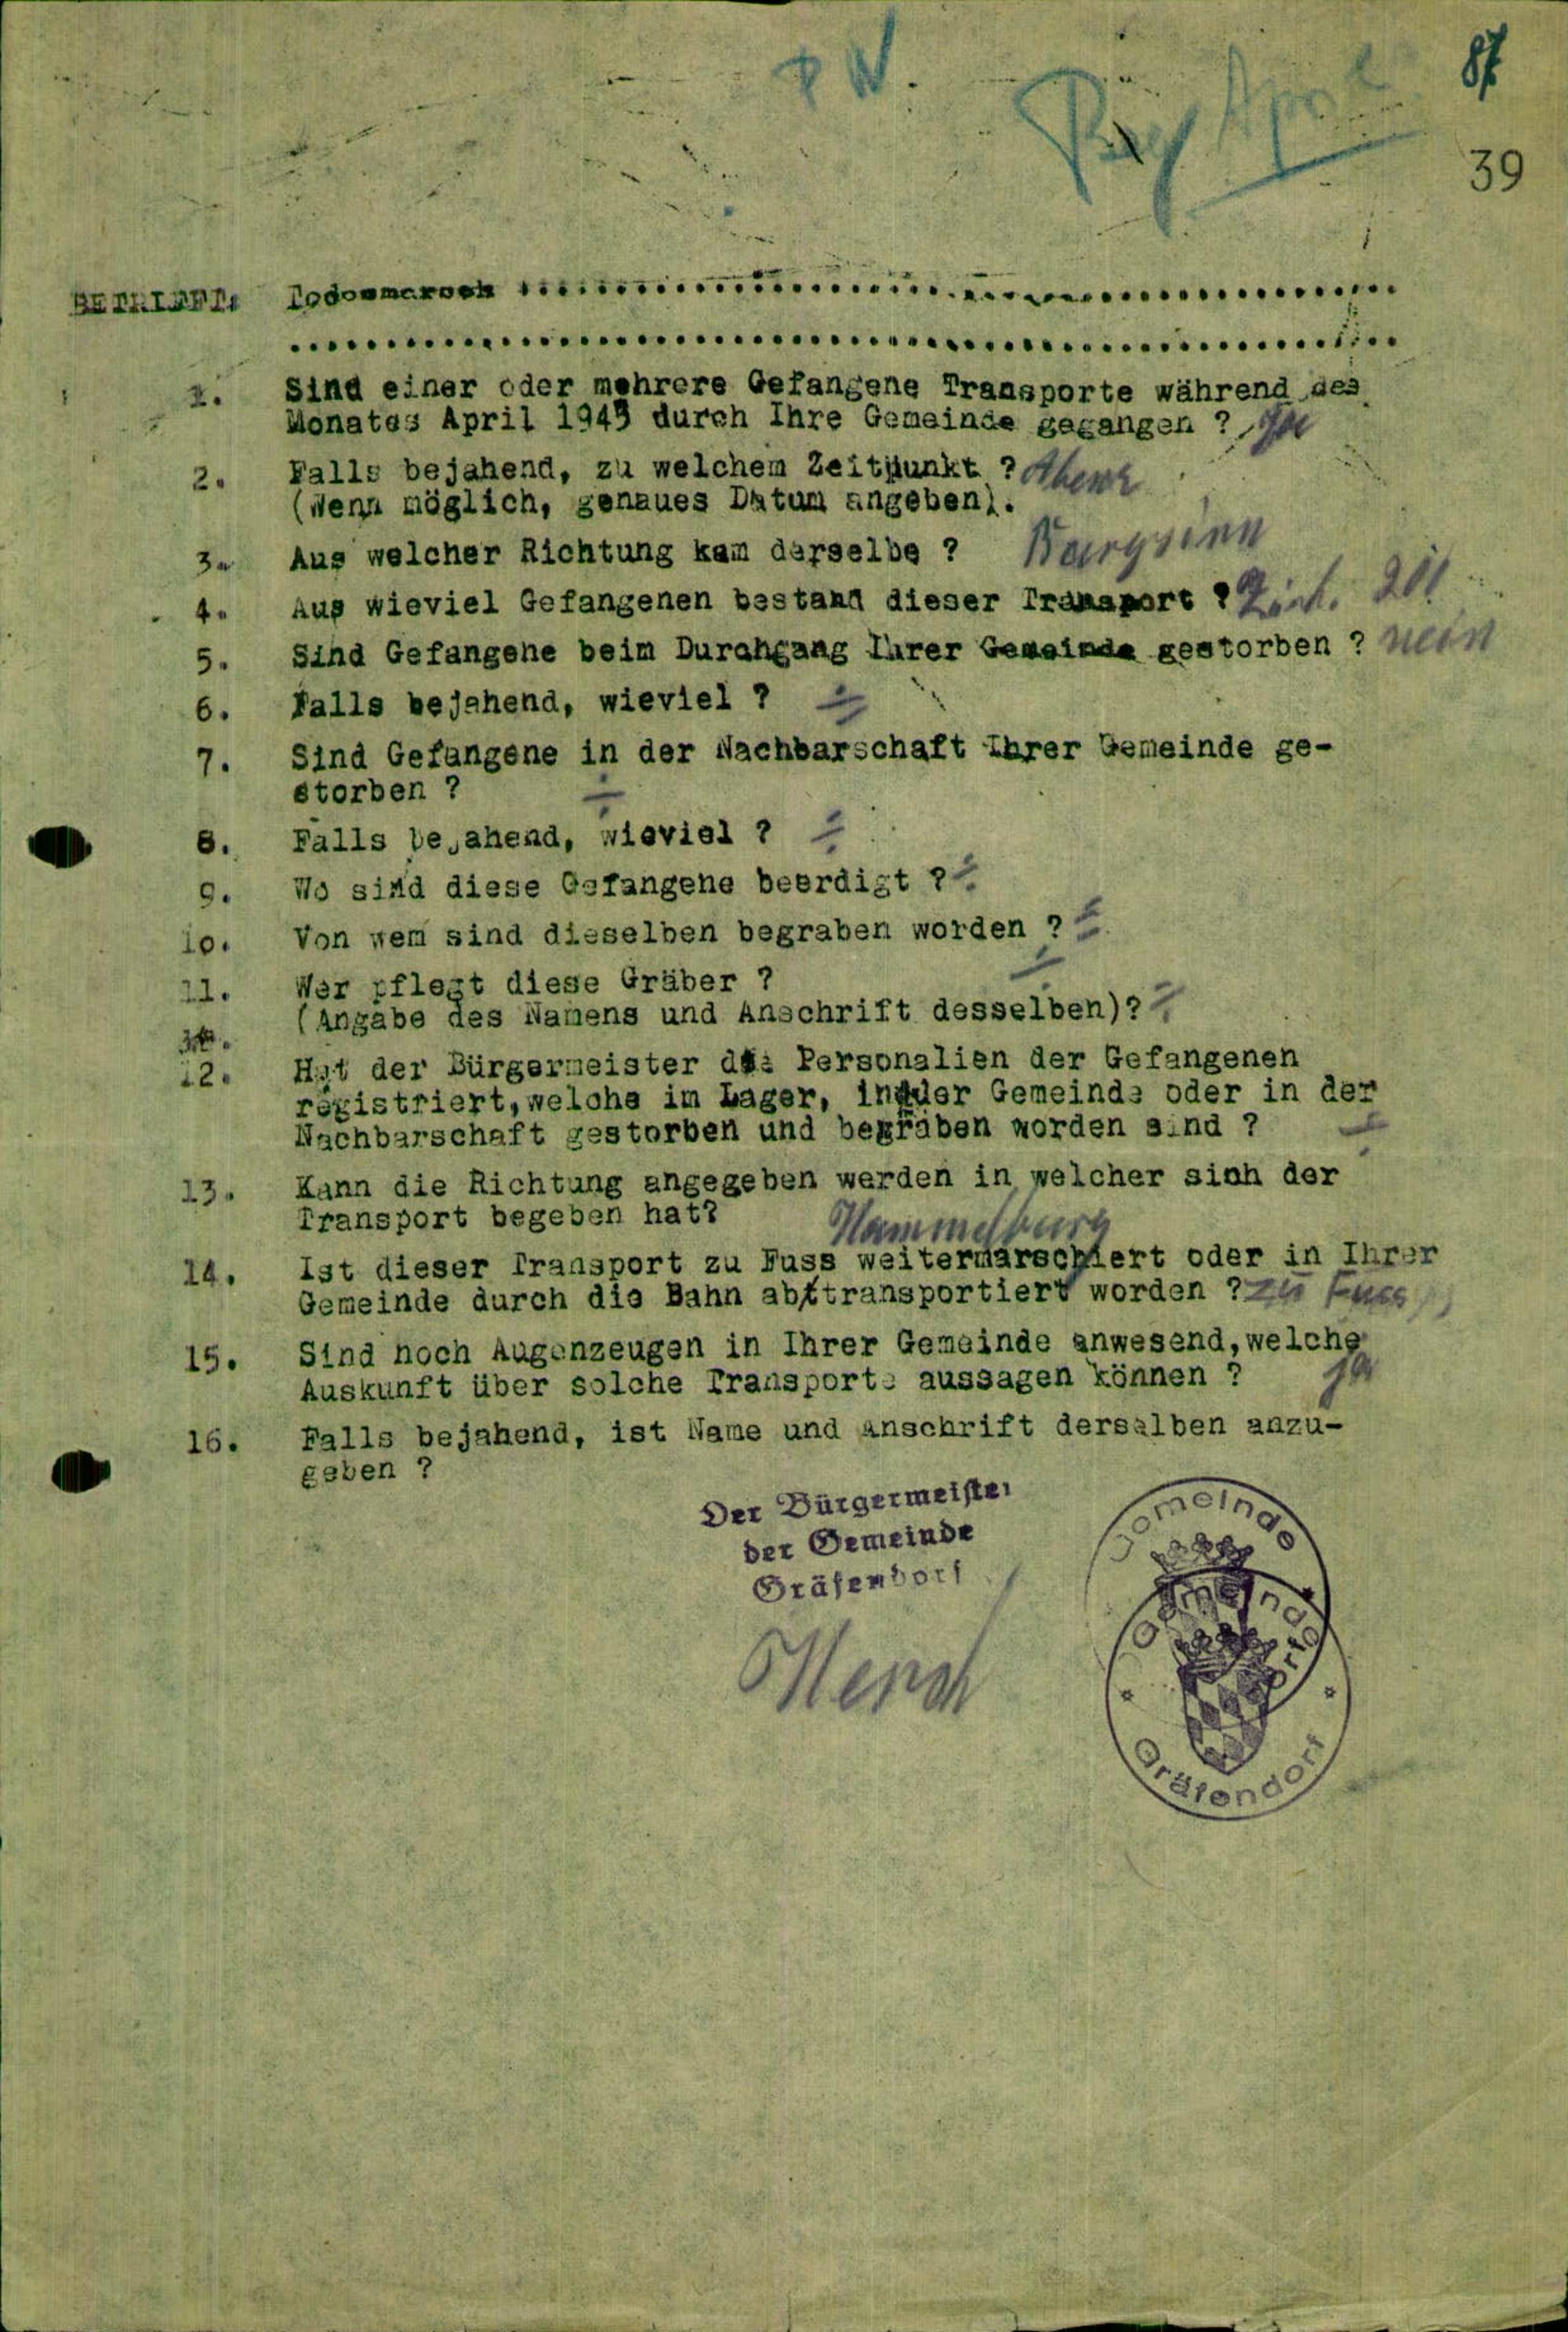 P W.
87
39
BETRIFFT: Todesmarsch ........................................
............................................................
1. Sind einer oder mehrere Gefangene Transporte während des
Monates April 1945 durch Ihre Gemeinde gegangen ? Ja
2. Falls bejahend, zu welchem Zeitpunkt ?
(Wenn möglich, genaues Datum angeben).
3. Aus welcher Richtung kam derselbe ? Burgsinn
4. Aus wieviel Gefangenen bestand dieser Transport ?
5. Sind Gefangene beim Durchgang Ihrer Gemeinde gestorben ? nein
6. Falls bejahend, wieviel ? ÷
7. Sind Gefangene in der Nachbarschaft Ihrer Gemeinde ge-
storben ? ÷
8. Falls bejahend, wieviel ? ÷
9. Wo sind diese Gefangene beerdigt ? ÷
10. Von wem sind dieselben begraben worden ? ÷
11. Wer pflegt diese Gräber ? ÷
(Angabe des Namens und Anschrift desselben)? ÷
12. Hat der Bürgermeister die Personalien der Gefangenen
registriert, welche im Lager, in der Gemeinde oder in der
Nachbarschaft gestorben und begraben worden sind ? ÷
13. Kann die Richtung angegeben werden in welcher sich der
Transport begeben hat? Hammelburg
14. Ist dieser Transport zu Fuss weitermarschiert oder in Ihrer
Gemeinde durch die Bahn abtransportiert worden ? zu Fuss
15. Sind noch Augenzeugen in Ihrer Gemeinde anwesend, welche
Auskunft über solche Transporte aussagen können ? ja
16. Falls bejahend, ist Name und Anschrift derselben anzu-
geben ?
Der Bürgermeister
der Gemeinde
Gräfendorf
Gemeinde
Gemeinde
Gräfendorf